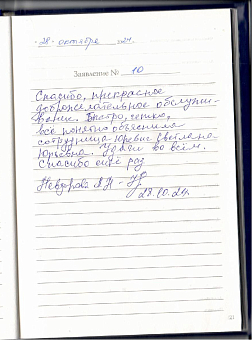 "28" октября 2024.
Заявление № 10
Спасибо, прекрасное
доброжелательное обслужи-
вание. Быстро, четко,
всё понятно объяснила
сотрудница Юревич Светлана
Юрьевна. Удачи во всём.
Спасибо ещё раз
28.10.24.